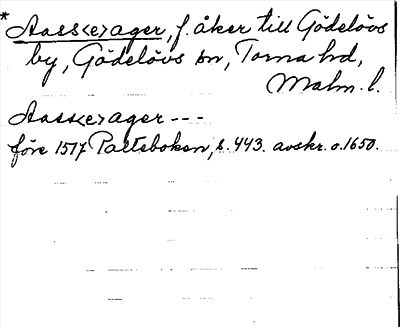 *Aass<e>ager, f. åker till Gödelövs
by, Gödelövs sn, Torna hd,
Malm. l.
Aass<e>ager ---
före 1517 Palteboken, s. 443. avskr. o. 1650.